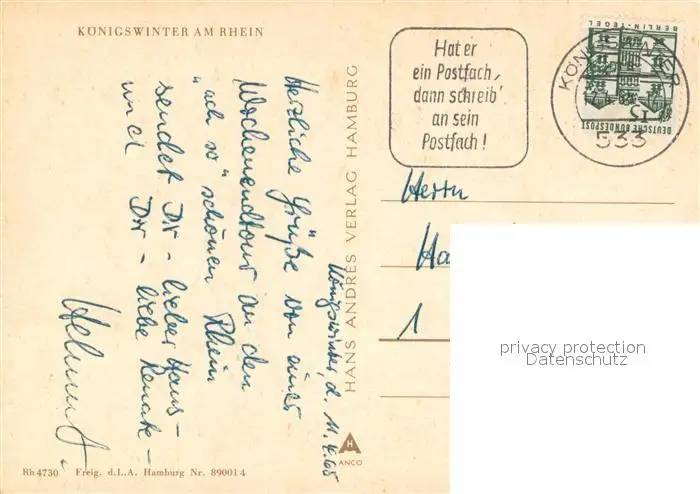 KÖNIGSWINTER AM RHEIN
Königswinter, d. 11.4.65
Herzliche Grüße von einer
Wochenendtour an den
"ach so" schönen Rhein
sendet Dir - lieber Hans -
und Dir - liebe Renate -
Helmut
HANS ANDRES VERLAG HAMBURG
Hat er
ein Postfach,
dann schreib'
an sein
Postfach!
BERLIN-TEGEL
DEUTSCHE BUNDESPOST
533
Herrn
Ha
1
privacy protection
Datenschutz
H
ANCO
Rh4730 Freig. d.L.A. Hamburg Nr. 89001 4